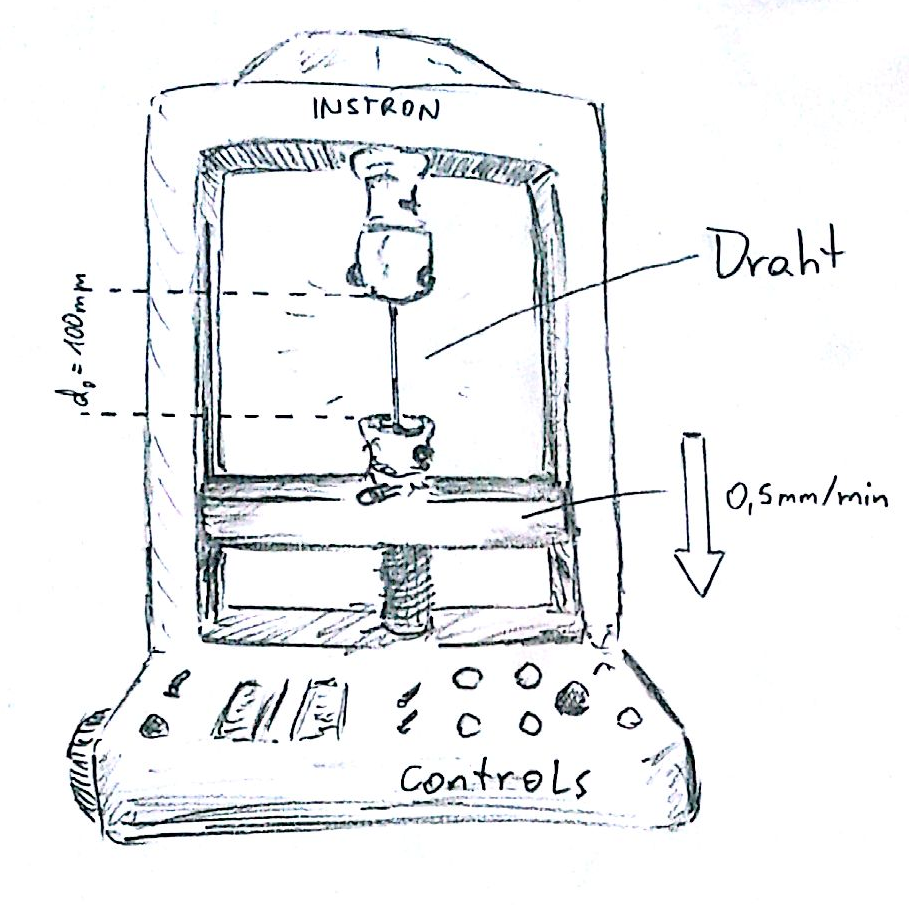 INSTRON
Draht
d₀ = 100mm
0,5mm/min
controls